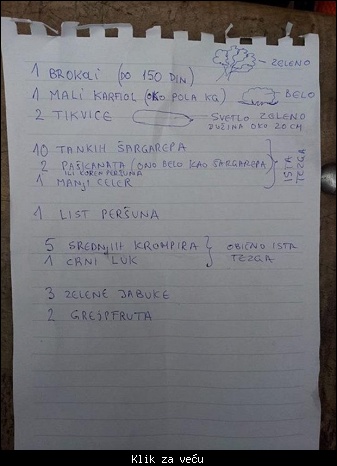 1 BROKOLI (DO 150 DIN) - ZELENO
1 MALI KARFIOL (OKO POLA KG) - BELO
2 TIKVICE - SVETLO ZELENO
DUŽINA OKO 20 CM
10 TANKIH ŠARGAREPA
2 PAŠKANATA (ONO BELO KAO ŠARGAREPA)
ILI KOREN PERŠUNA
1 MANJI CELER
ISTA TEZGA
1 LIST PERŠUNA
5 SREDNJIH KROMPIRA
1 CRNI LUK
OBIČNO ISTA
TEZGA
3 ZELENE JABUKE
2 GREJPFRUTA
Klik za veću